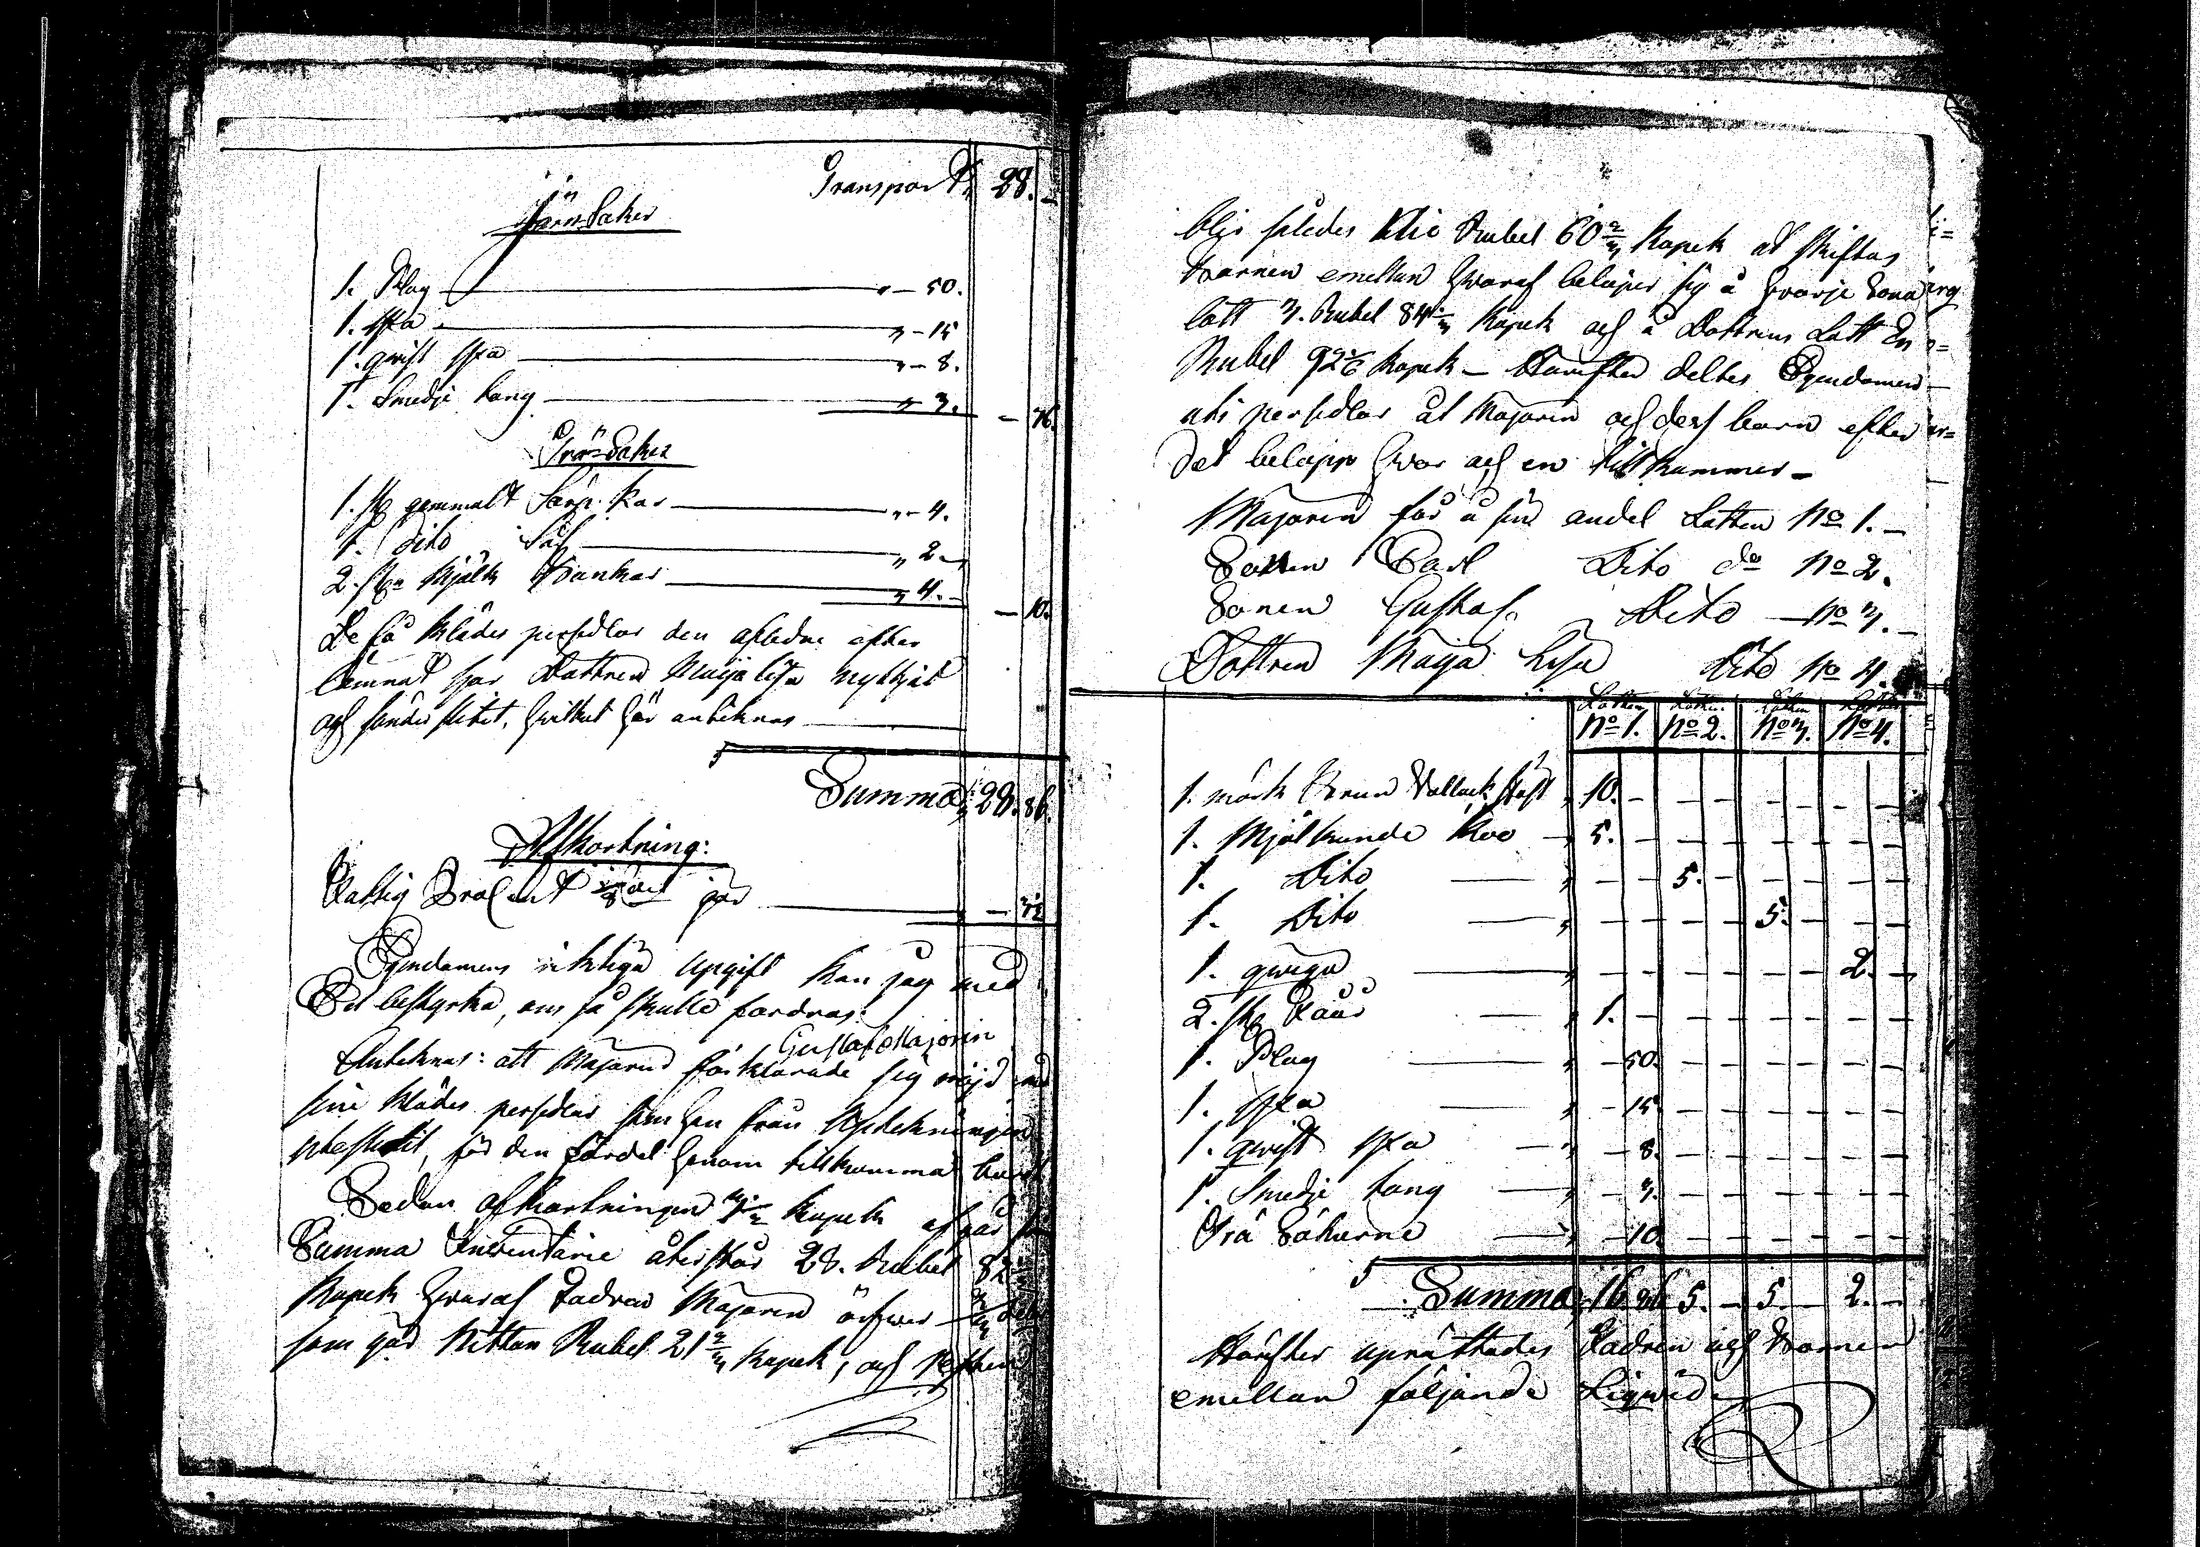 Transport 28. –
Järn Saker
1. Plog — " – 50.
1. Yxa — " – 15
1. qvist yxa — " – 8.
1. Smedje tång — " – 3. – 76.
Trä-Saker
1. st gammalt Kar — " – 4.
1. Dito Så — " 2. –
2. st Mjölk Bunkar — " 4. – – 10.
De få klädes persedlar den aflidne efter
lämnat har Dottren Maja Lisa nyttjat
och söndersletit, hvilket här anteknas —
Summa 28. 86.
Afkortning:
Fattig Procent gör —
Egendomens riktiga upgift kan jag med
Ed bestyrka, om så skulle fordras.
Gustaf Majorin
Anteknas: att Majorin förklarade sig nöjd med
sine klädes persedlar som han från Uptekningen
uteslutit, för den fördel honom tillkomma bordt
Sedan afkortningen Kopek afgår från
Summa Inventarie återstår 28. Rubel 82
Kopek hvaraf Fadren Majorin ärfver 2/3 delar
som gör Nitton Rubel 21 2/3 Kopek, och Resten
blir således Nio Rubel 60 2/3 Kopek at skiftas
Barnen emellan hvaraf belöper sig å hvarje Sona
lott 3. Rubel 84 Kopek och å Dottrens Lott En
Rubel 92 Kopek – Härefter deltes Egendomen
uti persedlar åt Majorin och dess barn efter
det belopp hvar och en tillkommer –
Majorin får å sin andel Lotten No 1. –
Sonen Carl Dito do No 2.
Sonen Gustaf Dito — No 3. –
Dottren Maja Lisa Dito No 4.
Lotten Lotten Lotten Lotten
No 1. No 2. No 3. No 4.
1. mörk Brun Vallack häst " 10. – – – – – – –
1. Mjölkande Koo — " 5. – – – – – – –
1. Dito — " – – 5. – – – – –
1. Dito — " – – – – 5. – – –
1. qviga — " – – – – – – 2. –
2. st Fåår — " 1. – – – – – – –
1. Plog — " – 50. – – – – – –
1. Yxa — " – 15 – – – – – –
1. qvist yxa — " – 8. – – – – – –
1. Smedje tång — " – 3. – – – – – –
Trä Sakerne — " – 10. – – – – – –
Summa 16 86 5. – 5. – 2. –
Härefter uprättades Fadren och Barnen
emellan följande Liqvid